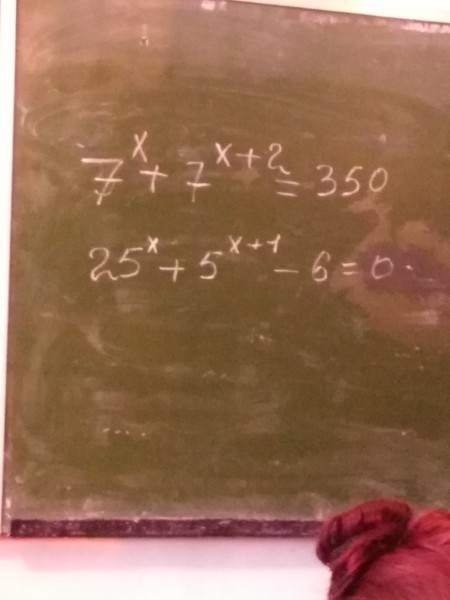 7^x + 7^{x+2} = 350
25^x + 5^{x+1} - 6 = 0.